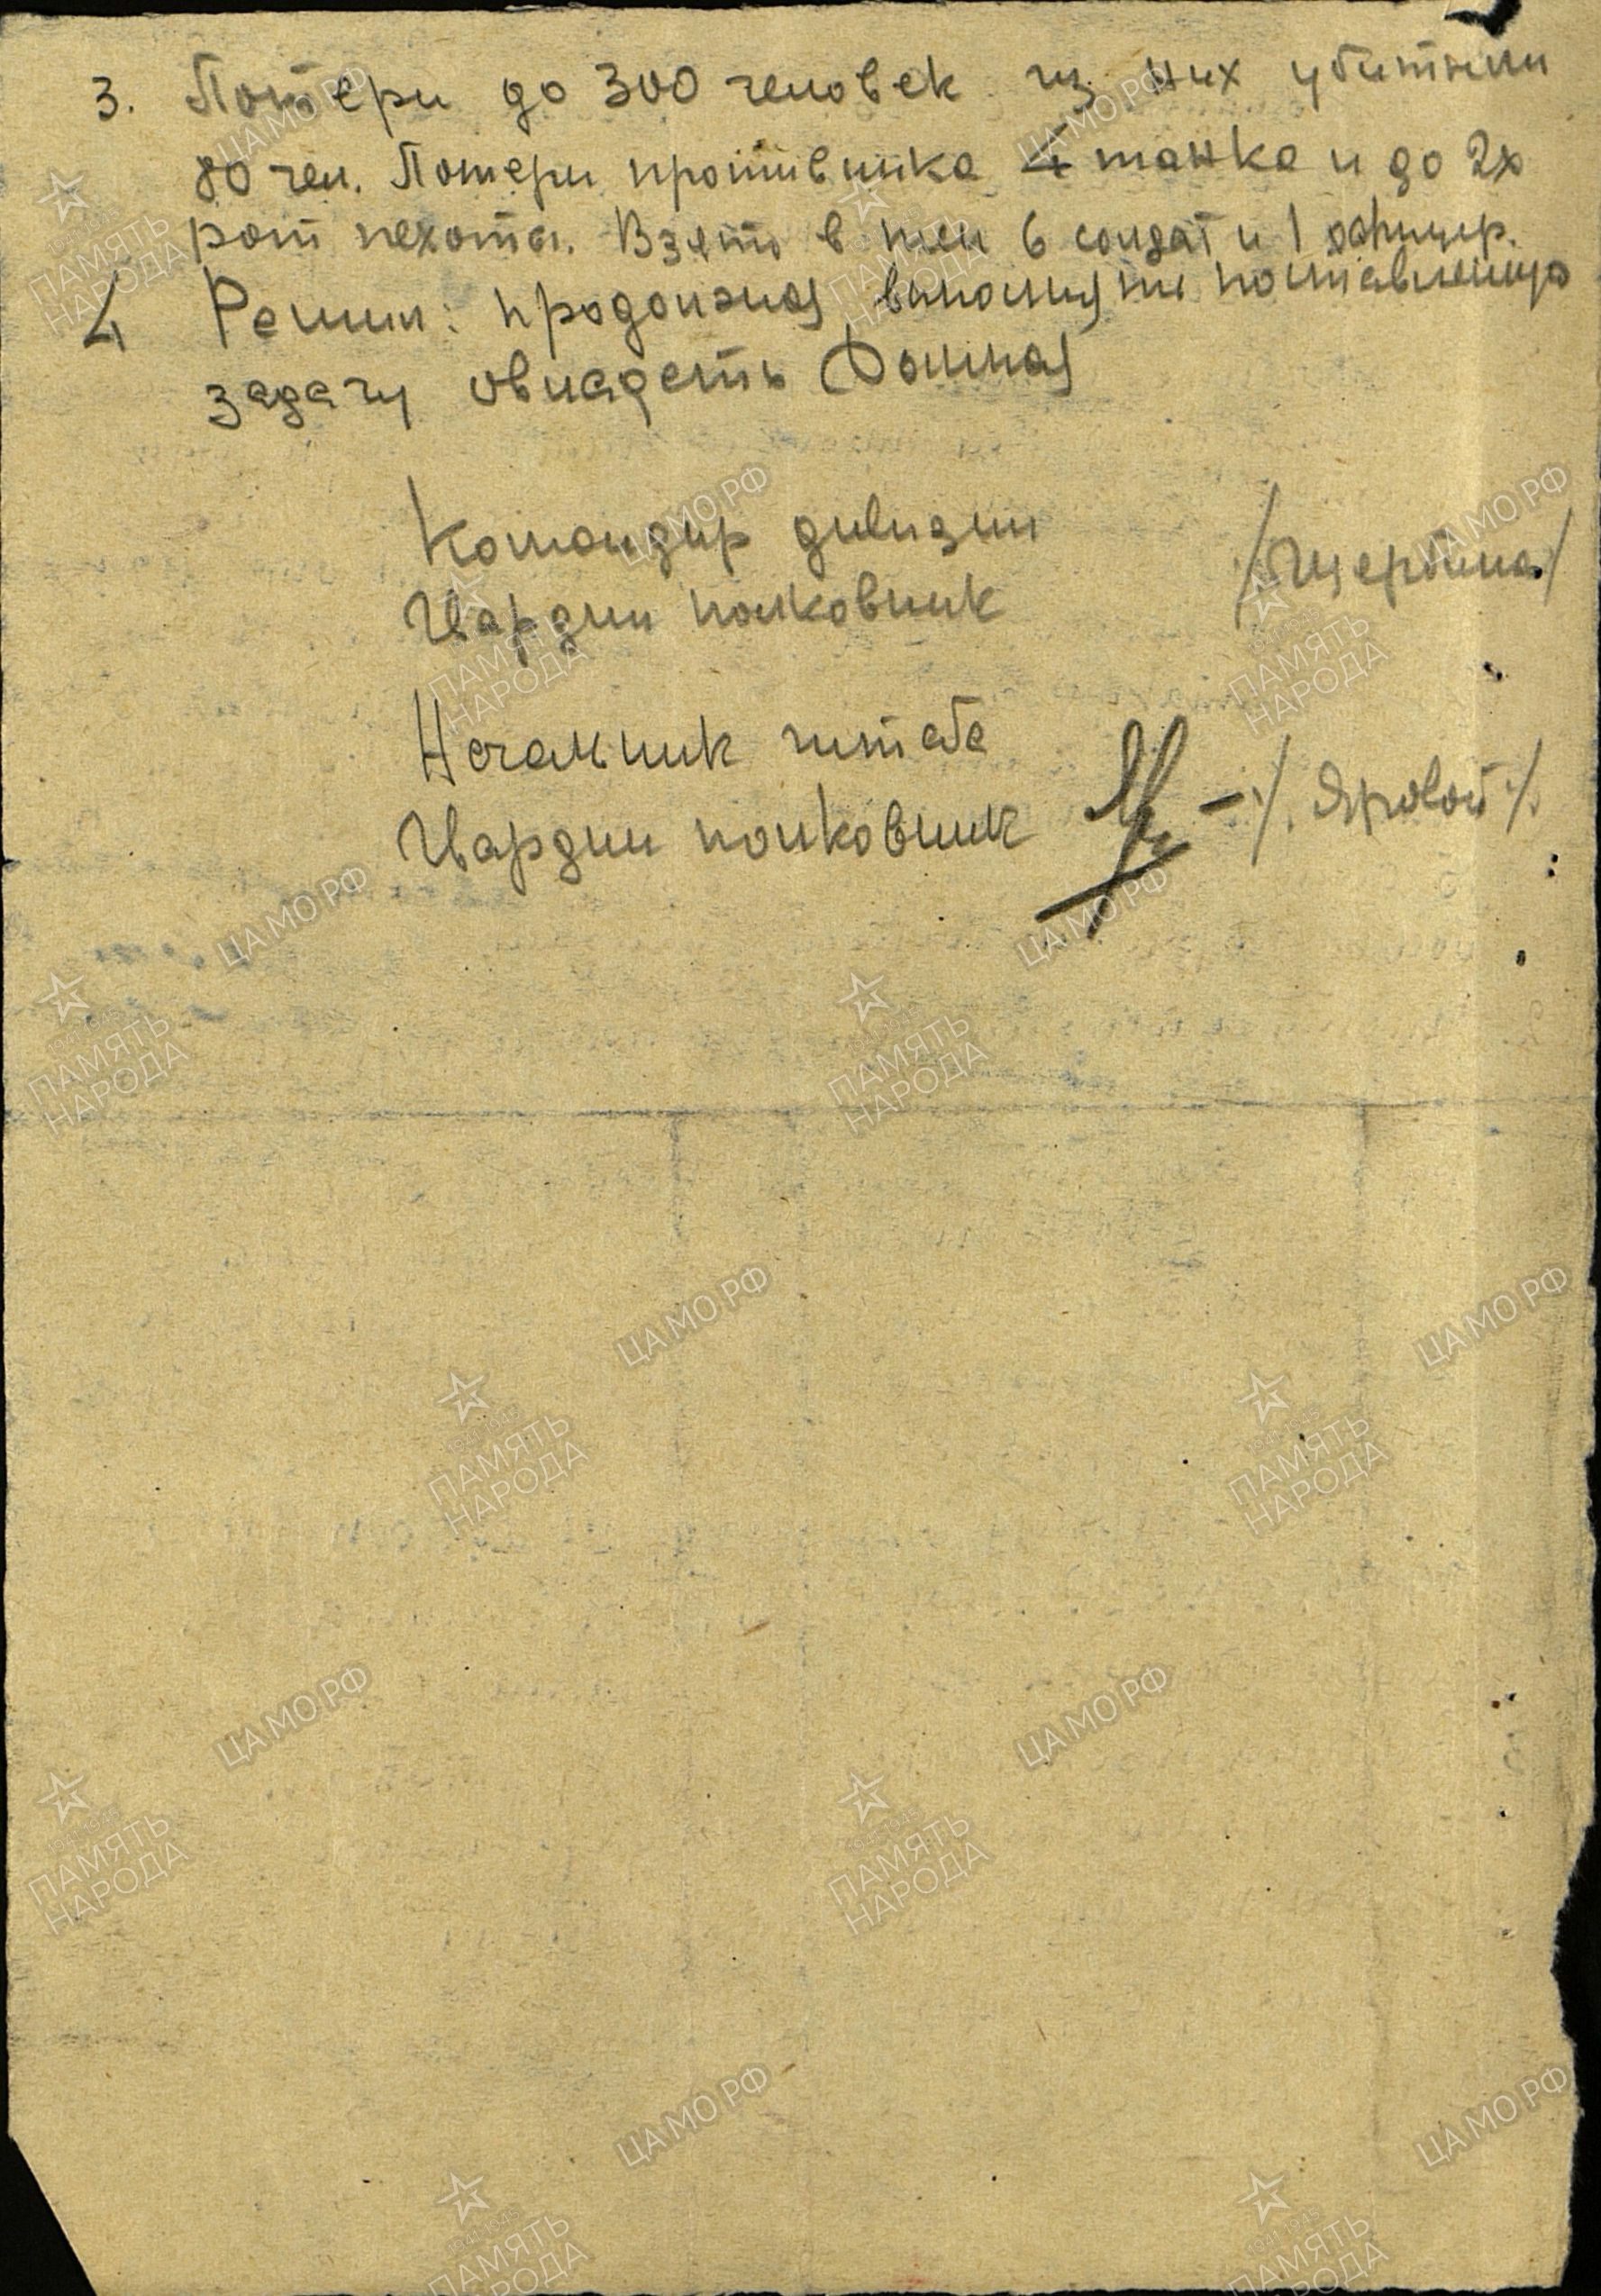 3. Потери до 300 человек из них убитыми
80 чел. Потери противника 4 танка и до 2х
рот пехоты. Взято в плен 6 солдат и 1 офицер.
4 Решил: продолжая выполнять поставленную
задачу овладеть
Командир дивизии
Гвардии полковник /Щербина/
Начальник штаба
Гвардии полковник /Яровой/
ЦАМО РФ
ПАМЯТЬ
НАРОДА